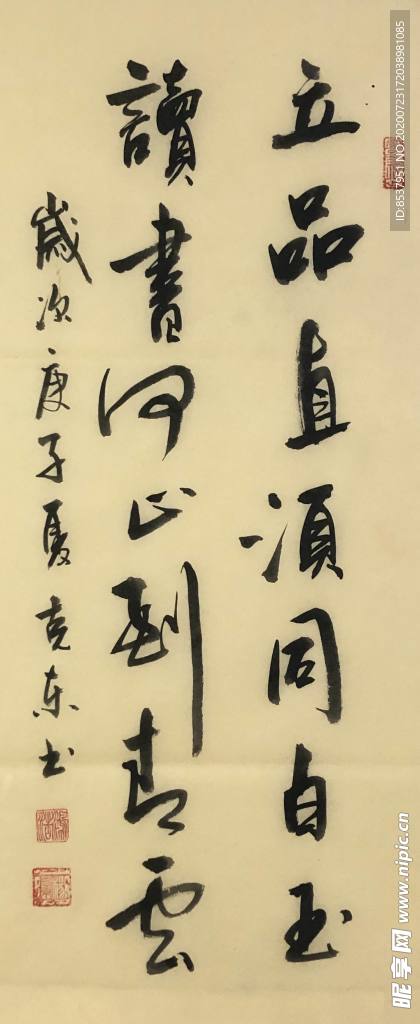 立品直須同白玉
讀書何止到青雲
歲次庚子夏克東书
ID:8537951 NO:20200723172038981085
昵享网 www.nipic.cn